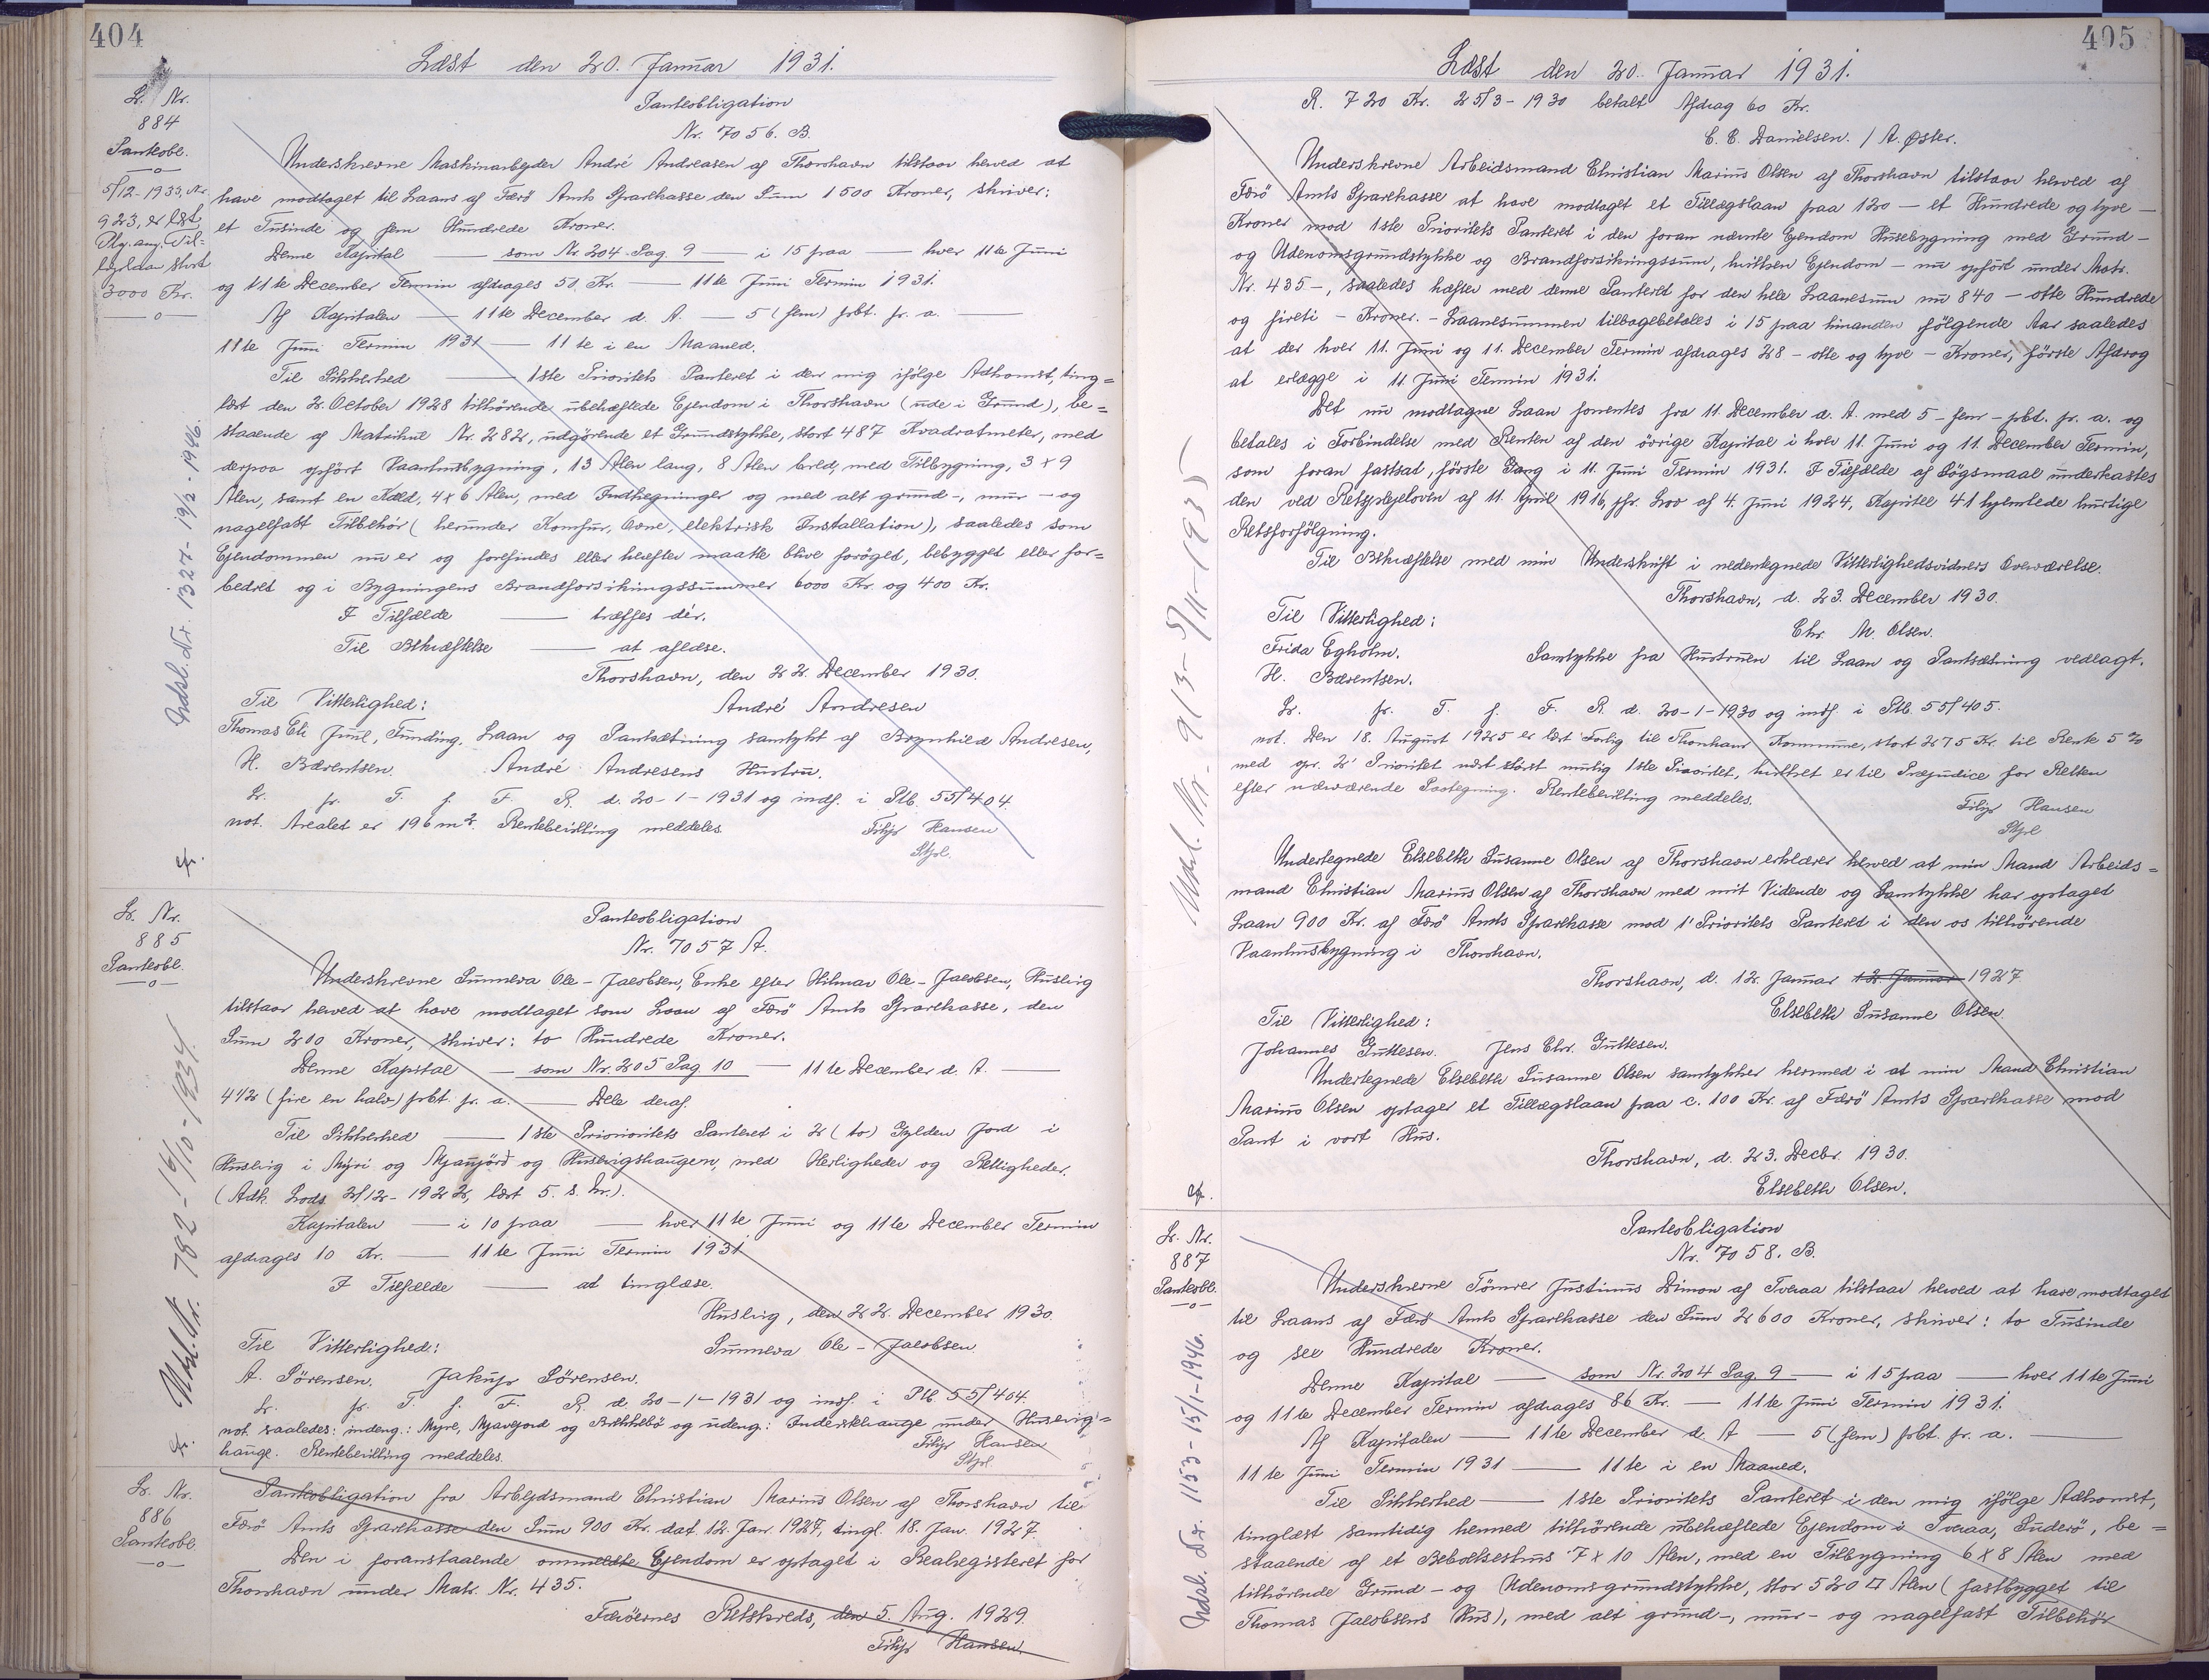 404
Læst den 20. Januar 1931.
Lb. Nr.
884
Panteobl.
5/12-1933, Nr.
923, er læst
Plg. ang. Til=
lægslaan stort
3000 Kr.
Udsl. Nr. 1327 - 19/2 - 1946.
Panteobligation
Nr. 7056. B.
Underskrevne Maskinarbejder André Andreasen af Thorshavn tilstaar herved at
have modtaget til Laans af Færö Amts Sparekasse den Sum 1500 Kroner, skriver:
et Tusinde og fem Hundrede Kroner.
Denne Kapital — som Nr. 204 Pag. 9 — i 15 paa — hver 11te Juni
og 11te December Termin afdrages 50 Kr. — 11te Juni Termin 1931.
Af Kapitalen — 11te December d. A. — 5 (fem) pCt. p. a. —
11te Juni Termin 1931 — 11te i en Maaned.
Til Sikkerhed — 1ste Prioritets Panteret i den mig ifølge Adkomst, ting=
læst den 2. October 1928 tilhörende ubehæftede Ejendom i Thorshavn (ude i Grund), be=
staaende af Matrikul Nr. 282, udgörende et Grundstykke, stort 487 Kvadratmeter, med
derpaa opfört Vaanhusbygning, 13 Alen lang, 8 Alen bred, med Tilbygning, 3 x 9
Alen, samt en Kæld, 4 x 6 Alen, med Indhegninger og med alt grund-, mur- og
nagelfast Tilbehör (herunder Komfur, Ovne, elektrisk Installation), saaledes som
Ejendommen nu er og forefindes eller herefter maatte blive foröget, bebygget eller for=
bedret og i Bygningens Brandforsikringssummer 6000 Kr. og 400 Kr.
I Tilfælde — træffes dér.
Til Bekræftelse — at aflæse.
Thorshavn, den 22. December 1930.
Til Vitterlighed: André Andresen
Thomas Eli Juul, Funding. Laan og Pantsætning samtykt af Brynhild Andresen,
H. Bærentsen. André Andresens Hustru.
Lr. p. T. f. F. R. d. 20-1-1931 og indf. i Ptb. 55/404.
not. Arealet er 196 m². Rentebevilling meddeles.
Filip Hansen
Stpl.
cfr.
Lb. Nr.
885
Panteobl.
Udsl. Nr. 782 - 16/10 - 1934.
Panteobligation
Nr. 7057 A.
Underskrevne Sunneva Ole-Jacobsen, Enke efter Hilmar Ole-Jacobsen, Husevig
tilstaar herved at have modtaget som Laan af Færö Amts Sparekasse, den
Sum 200 Kroner, skriver: to Hundrede Kroner.
Denne Kapital — som Nr. 205 Pag 10 — 11te December d. A. —
4 1/2 (fire en halv) pCt. p. a. — Dele deraf.
Til Sikkerhed — 1ste Priorioritets Panteret i 2 (to) Gylden Jord i
Husevig i Mýri og Mjaujörd og Husevigshaugen, med Herligheder og Rettigheder.
(Adk. Lods. 2/12-1922, læst 5. s. M.).
Kapitalen — i 10 paa — hver 11te Juni og 11te December Termin
afdrages 10 Kr. — 11te Juni Termin 1931
I Tilfælde — at tinglæse.
Husevig, den 22. December 1930.
Til Vitterlighed: Sunneva Ole-Jacobsen.
A. Sörensen. Jakup Sörensen.
Lr. p. T. f. F. R. d. 20-1-1931 og indf. i Ptb. 55/404.
not. saaledes: indeng.: Myre, Mjavejord og Brekkebö og udeng.: under Husevig=
hauge. Rentebevilling meddeles.
Filip Hansen
Stpl.
cfr.
Lb. Nr.
886
Panteobl.
Panteobligation fra Arbejdsmand Christian Marius Olsen af Thorshavn til
Færö Amts Sparekasse den Sum 900 Kr. dat. 12. Jan. 1927, tingl. 18. Jan. 1927.
Den i foranstaaende ommeldte Ejendom er optaget i Realregisteret for
Thorshavn under Matr. Nr. 435.
Færöernes Retskreds, den 5. Aug. 1929.
Filip Hansen.
405
Læst den 20. Januar 1931.
R. 720 Kr. 25/3-1930 betalt Afdrag 60 Kr.
C. C. Danielsen. / A. Øster.
Underskrevne Arbeidsmand Christian Marius Olsen af Thorshavn tilstaar herved af
Færö Amts Sparekasse at have modtaget et Tillægslaan paa 120 — et Hundrede og tyve —
Kroner mod 1ste Prioritets Panteret i den foran nævnte Ejendom Husebygning med Grund-
og Udenomsgrundstykke og Brandforsikringssum, hvilken Ejendom — nu opfört under Matr.
Nr. 435 —, saaledes hæfter med denne Panteret for den hele Laanesum nu 840 — otte Hundrede
og fireti — Kroner. — Laanesummen tilbagebetales i 15 paa hinanden fölgende Aar saaledes
at der hver 11. Juni og 11. December Termin afdrages 28 — otte og tyve — Kroner, förste Afdrag
at erlægge i 11. Juni Termin 1931.
Det nu modtagne Laan forrentes fra 11. December d. A. med 5 — fem — pCt. p. a. og
betales i Forbindelse med Renten af den övrige Kapital i hver 11. Juni og 11. December Termin,
som foran fastsat, förste Gang i 11. Juni Termin 1931. I Tilfælde af Sögsmaal underkastes
den ved Retsplejeloven af 11. April 1916, jfr. Lov af 4. Juni 1924, Kapitel 41 hjemlede hurtige
Retsforfölgning.
Til Bekræftelse med min Underskrift i nedentegnede Vitterlighedsvidners Overværelse.
Thorshavn, d. 23. December 1930.
Til Vitterlighed: Chr. M. Olsen.
Frida Egholm. Samtykke fra Hustruen til Laan og Pantsætning vedlagt.
H. Bærentsen.
Lr. p. T. f. F. R. d. 20-1-1930 og indf. i Ptb. 55/405.
not. Den 18. August 1925 er læst Forlig til Thorshavns Kommune, stort 275 Kr. til Rente 5 %
med opr. 2' Prioritet næst störst mulig 1ste Prioritet, hvilket er til Præjudice for Retten
efter nærværende Paategning. Rentebevilling meddeles.
Filip Hansen
Stpl
Udsl. Nr. 913 - 5/11 - 1935
Undertegnede Elsebeth Susanne Olsen af Thorshavn erklærer herved at min Mand Arbeids=
mand Christian Marius Olsen af Thorshavn med mit Vidende og Samtykke har optaget
Laan 900 Kr. af Færö Amts Sparekasse mod 1' Prioritets Panteret i den os tilhörende
Vaanhusbygning i Thorshavn.
Thorshavn, d. 12. Januar 12. Januar 1927
Til Vitterlighed: Elsebeth Susanne Olsen.
Johannes Guttesen. Jens Chr. Guttesen.
Undertegnede Elsebeth Susanne Olsen samtykker hermed i at min Mand Christian
Marius Olsen optager et Tillægslaan paa c. 100 Kr. af Færö Amts Sparekasse mod
Pant i vort Hus.
Thorshavn, d. 23. Decbr. 1930.
Elsebeth Olsen.
cfr.
Lb. Nr.
887
Panteobl.
Udsl. Nr. 1153 - 15/1 - 1946.
Panteobligation
Nr. 7058. B.
Underskrevne Tömrer Justinus Dimon af Tveraa tilstaar herved at have modtaget
til Laans af Færö Amts Sparekasse den Sum 2600 Kroner, skriver: to Tusinde
og sex Hundrede Kroner.
Denne Kapital — som Nr. 204 Pag. 9 — i 15 paa — hver 11te Juni
og 11te December Termin afdrages 86 Kr. — 11te Juni Termin 1931.
Af Kapitalen — 11te December d. A — 5 (fem) pCt. p. a. —
11te Juni Termin 1931 — 11te i en Maaned.
Til Sikkerhed — 1ste Prioritets Panteret i den mig ifölge Adkomst,
tinglæst samtidig hermed tilhörende ubehæftede Ejendom i Tveraa, Suderö, be=
staaende af et Beboelseshus 7 x 10 Alen, med en Tilbygning 6 x 8 Alen med
tilhörende Grund- og Udenomsgrundstykke, stor 520 □ Alen (fastbygget til
Thomas Jacobsens Hus), med alt grund-, mur- og nagelfast Tilbehör